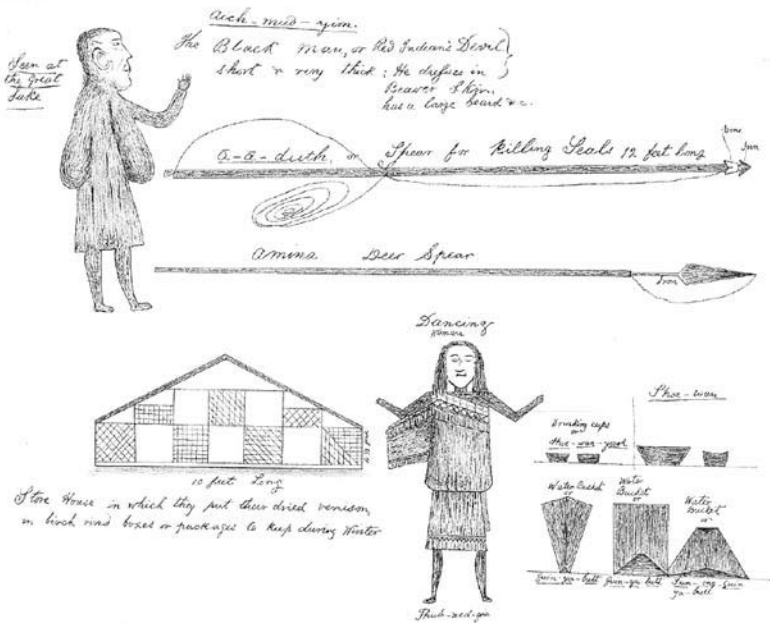 Seen at
the Great
Lake
Aich-mud-yim.
The Black Man, or Red Indian's Devil
short & very thick; He dresses in
Beaver Skin,
has a large beard &c.
a-a-duth, or Spear for Killing Seals 12 feet long
bone
Iron
Amina Deer Spear
Iron
Dancing
Woman
Thub-wed-gie
10 feet Long
Store House in which they put their dried venison,
in birch rind boxes or packages to keep during Winter
Shoe-wan
Drinking cups
or
Water Bucket
or
Water
Bucket
or
Water
Bucket
or
Guin-ya-butt
Guin-ya-butt